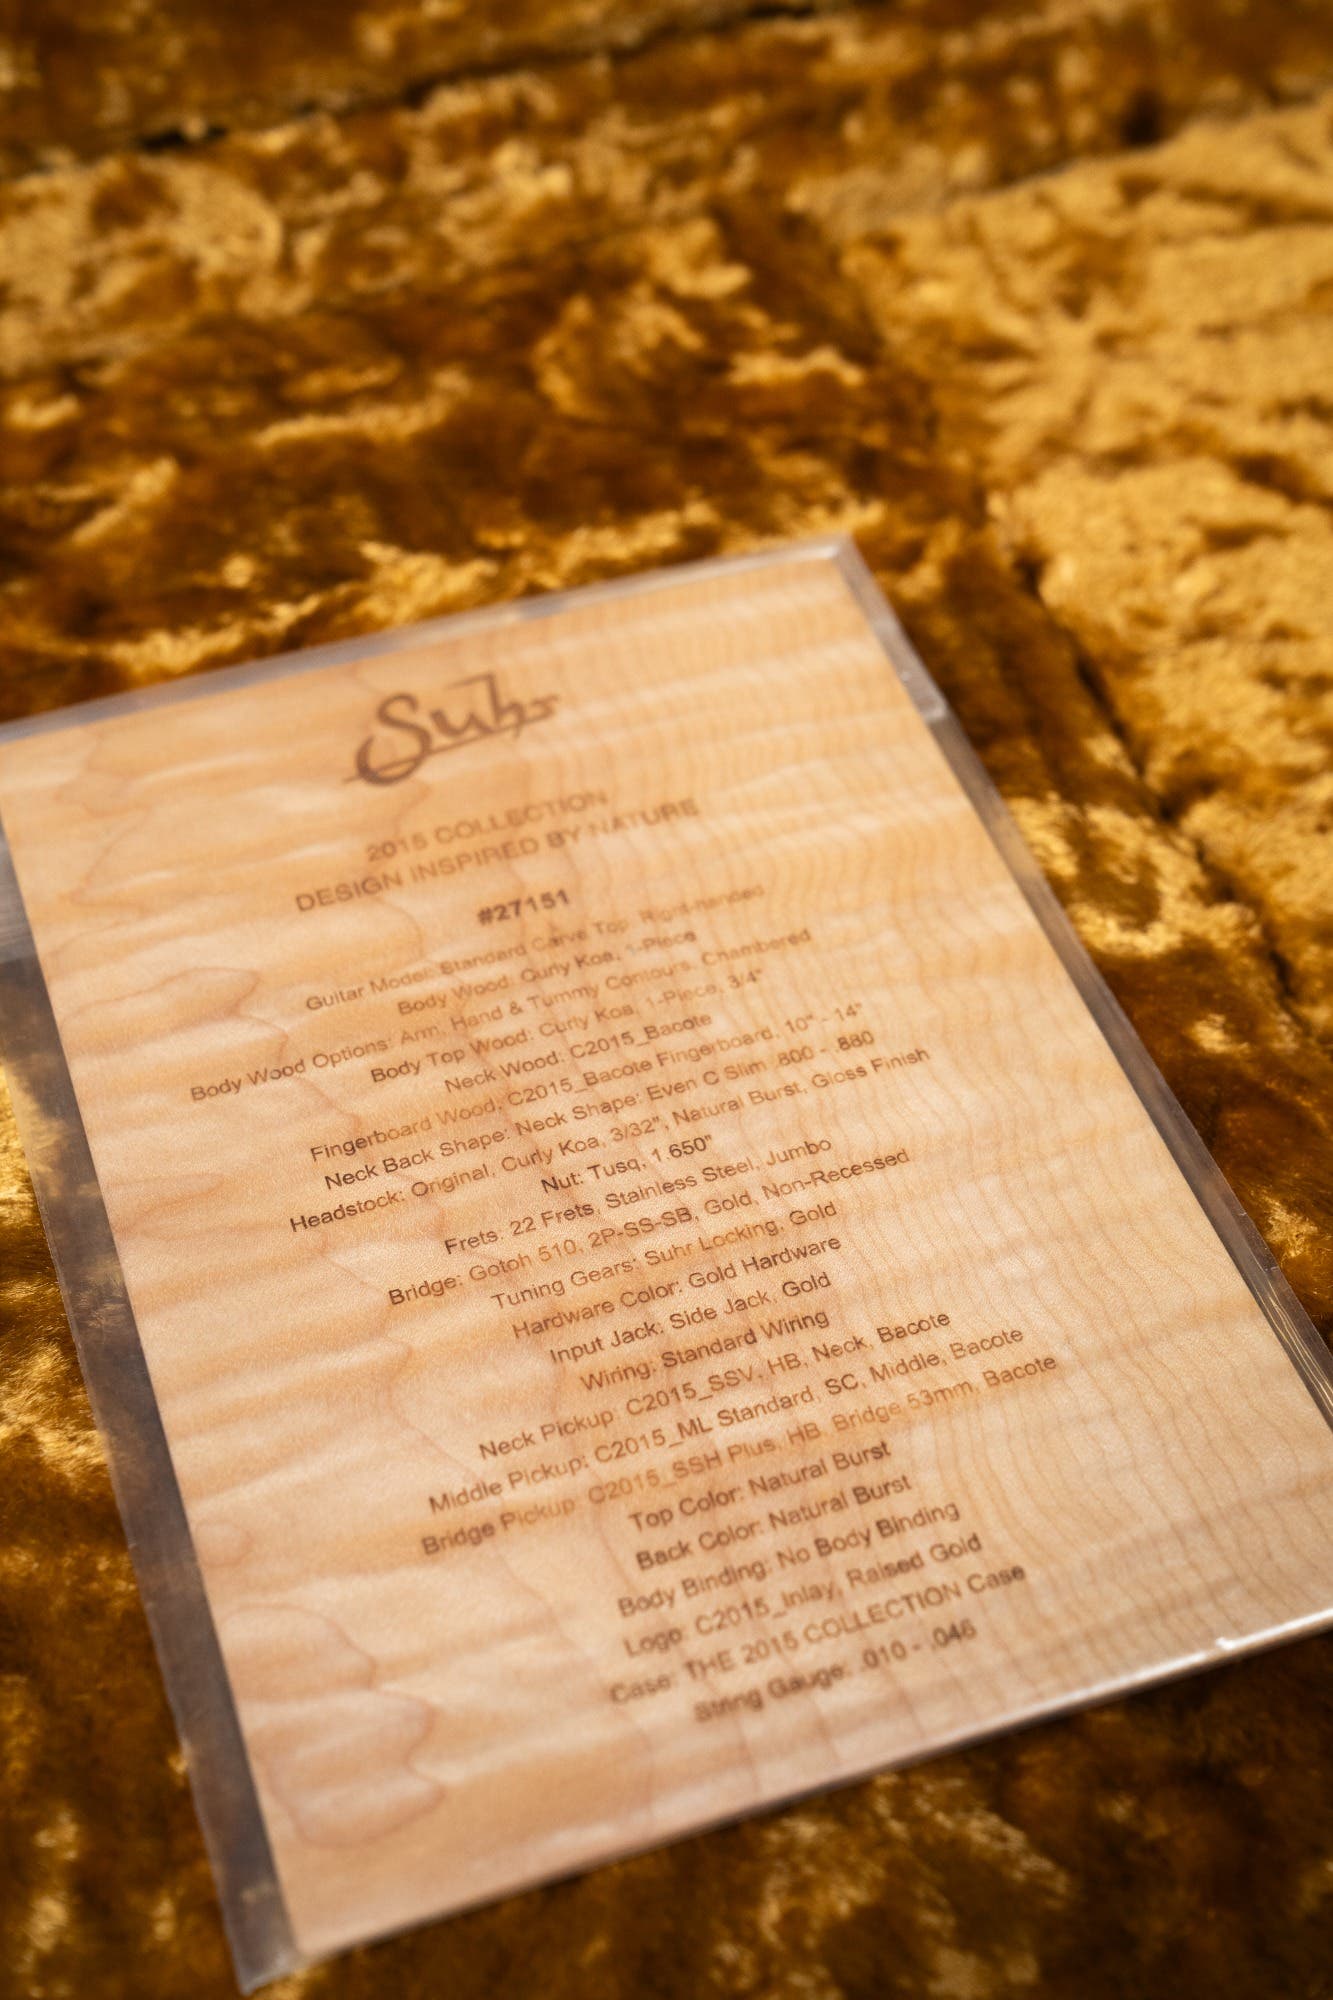 Suhr
2015 COLLECTION
DESIGN INSPIRED BY NATURE
#27151
Guitar Model: Standard Carve Top, Right-handed
Body Wood: Curly Koa, 1-Piece
Body Wood Options: Arm, Hand & Tummy Contours, Chambered
Body Top Wood: Curly Koa, 1-Piece, 3/4"
Neck Wood: C2015_Bacote
Fingerboard Wood: C2015_Bacote Fingerboard, 10" - 14"
Neck Back Shape: Neck Shape: Even C Slim .800 - .880
Headstock: Original, Curly Koa, 3/32", Natural Burst, Gloss Finish
Nut: Tusq, 1.650"
Frets: 22 Frets, Stainless Steel, Jumbo
Bridge: Gotoh 510, 2P-SS-SB, Gold, Non-Recessed
Tuning Gears: Suhr Locking, Gold
Hardware Color: Gold Hardware
Input Jack: Side Jack, Gold
Wiring: Standard Wiring
Neck Pickup: C2015_SSV, HB, Neck, Bacote
Middle Pickup: C2015_ML Standard, SC, Middle, Bacote
Bridge Pickup: C2015_SSH Plus, HB, Bridge 53mm, Bacote
Top Color: Natural Burst
Back Color: Natural Burst
Body Binding: No Body Binding
Logo: C2015_Inlay, Raised Gold
Case: THE 2015 COLLECTION Case
String Gauge: .010 - .046